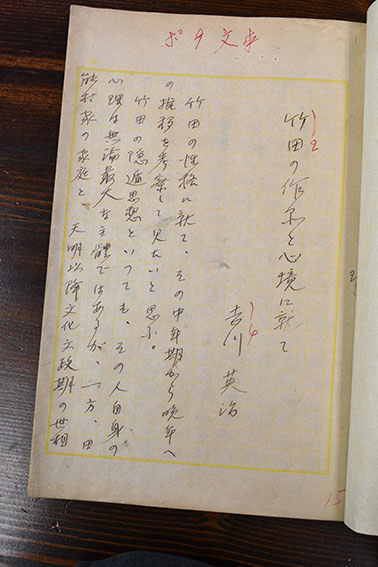 12
竹田の作品と心境に就て
14
吉川 英治
竹田の性格に就て、その中年期から晩年へ
の推移を考察して見たいと思ふ。
竹田の隠遁思想といつても、その人自身の
心理は無論最大な主體ではあるが、一方、田
能村家の家庭と、天明以降文化文政期の世相
15